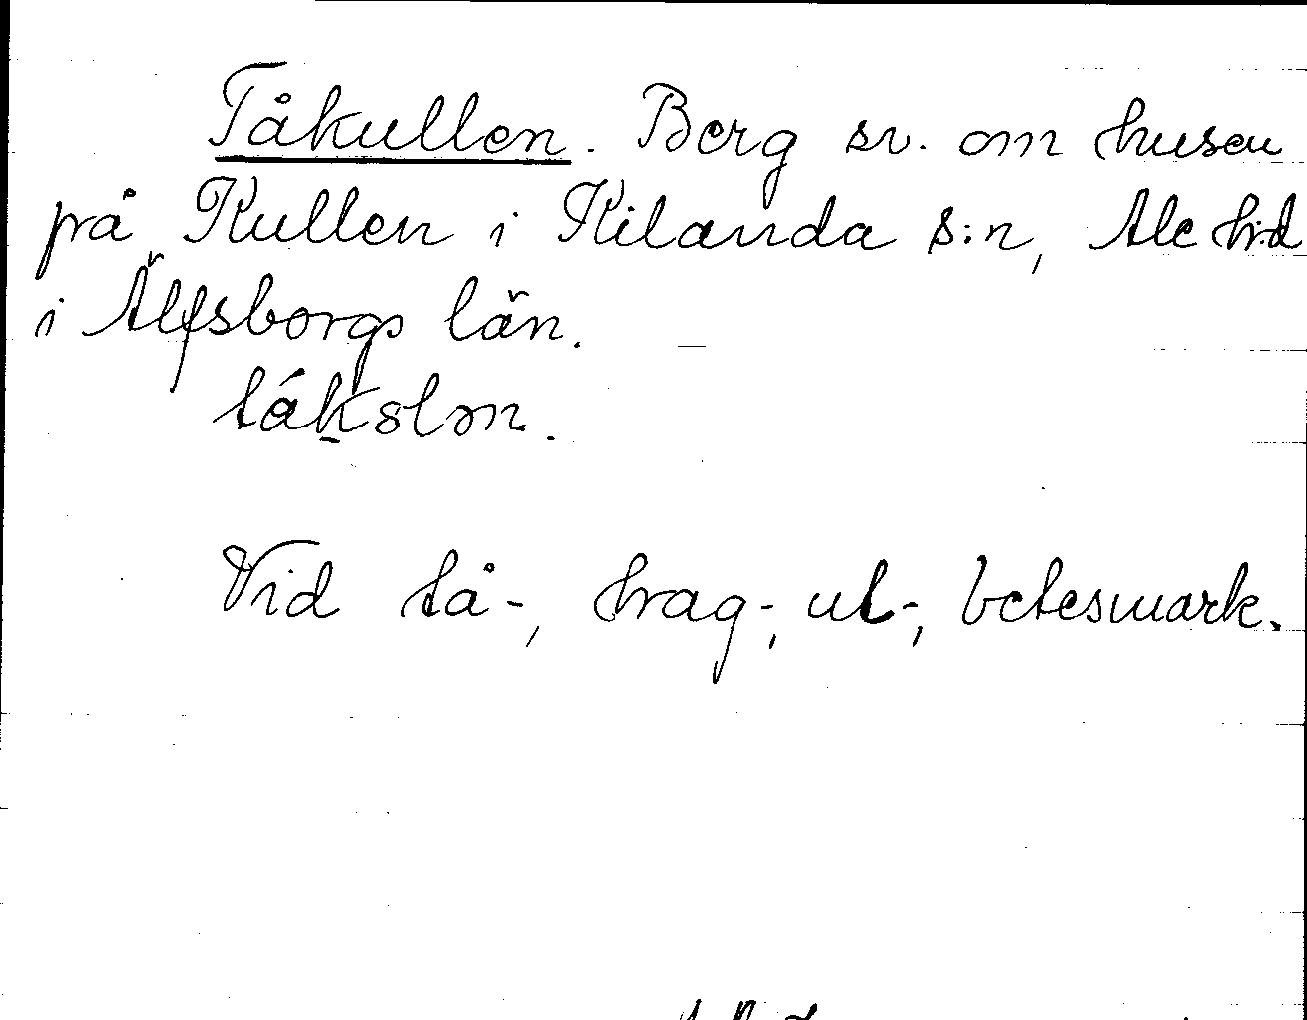 Tåkullen. Berg sv. om husen
på Kullen i Kilanda s:n, Ale hd
i Älfsborgs län.
Vid tå-, hag-, ut-, betesmark.